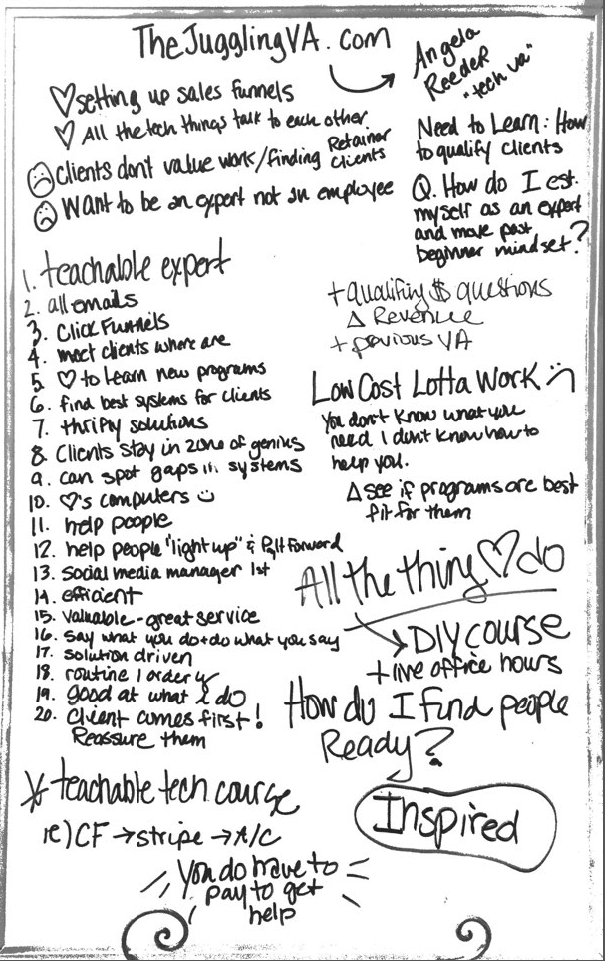 TheJugglingVA.com
Angela
Reeder
"tech va"
♡setting up sales funnels
♡ All the tech things talk to each other
☹Clients don't value work/finding Retainer
clients
☹ Want to be an expert not an employee
Need to Learn: How
to qualify clients
Q. How do I est.
myself as an expert
and move past
beginner mindset?
1. teachable expert
2. all emails
3. Click Funnels
4. meet clients where are
5. ♡ to learn new programs
6. find best systems for clients
7. thrifty solutions
8. Clients stay in zone of genius
9. can spot gaps in systems
10. ♡'s computers ☺
11. help people
12. help people "light up" & Pay it Forward
13. social media manager 1st
14. efficient
15. valuable-great service
16. say what you do + do what you say
17. solution driven
18. routine / orderly
19. good at what I do
20. Client comes first!
Reassure them
+qualifing $ questions
Δ Revenue
+ pevious VA
Low Cost Lotta Work ☹
You don't know what you
need I don't know how to
help you.
Δ see if programs are best
fit for them
All the thing ♡ do
→DIY course
+ live office hours
How do I find people
Ready?
Inspired
* teachable tech course
ie) CF → stripe → A/C
You do have to
pay to get
help